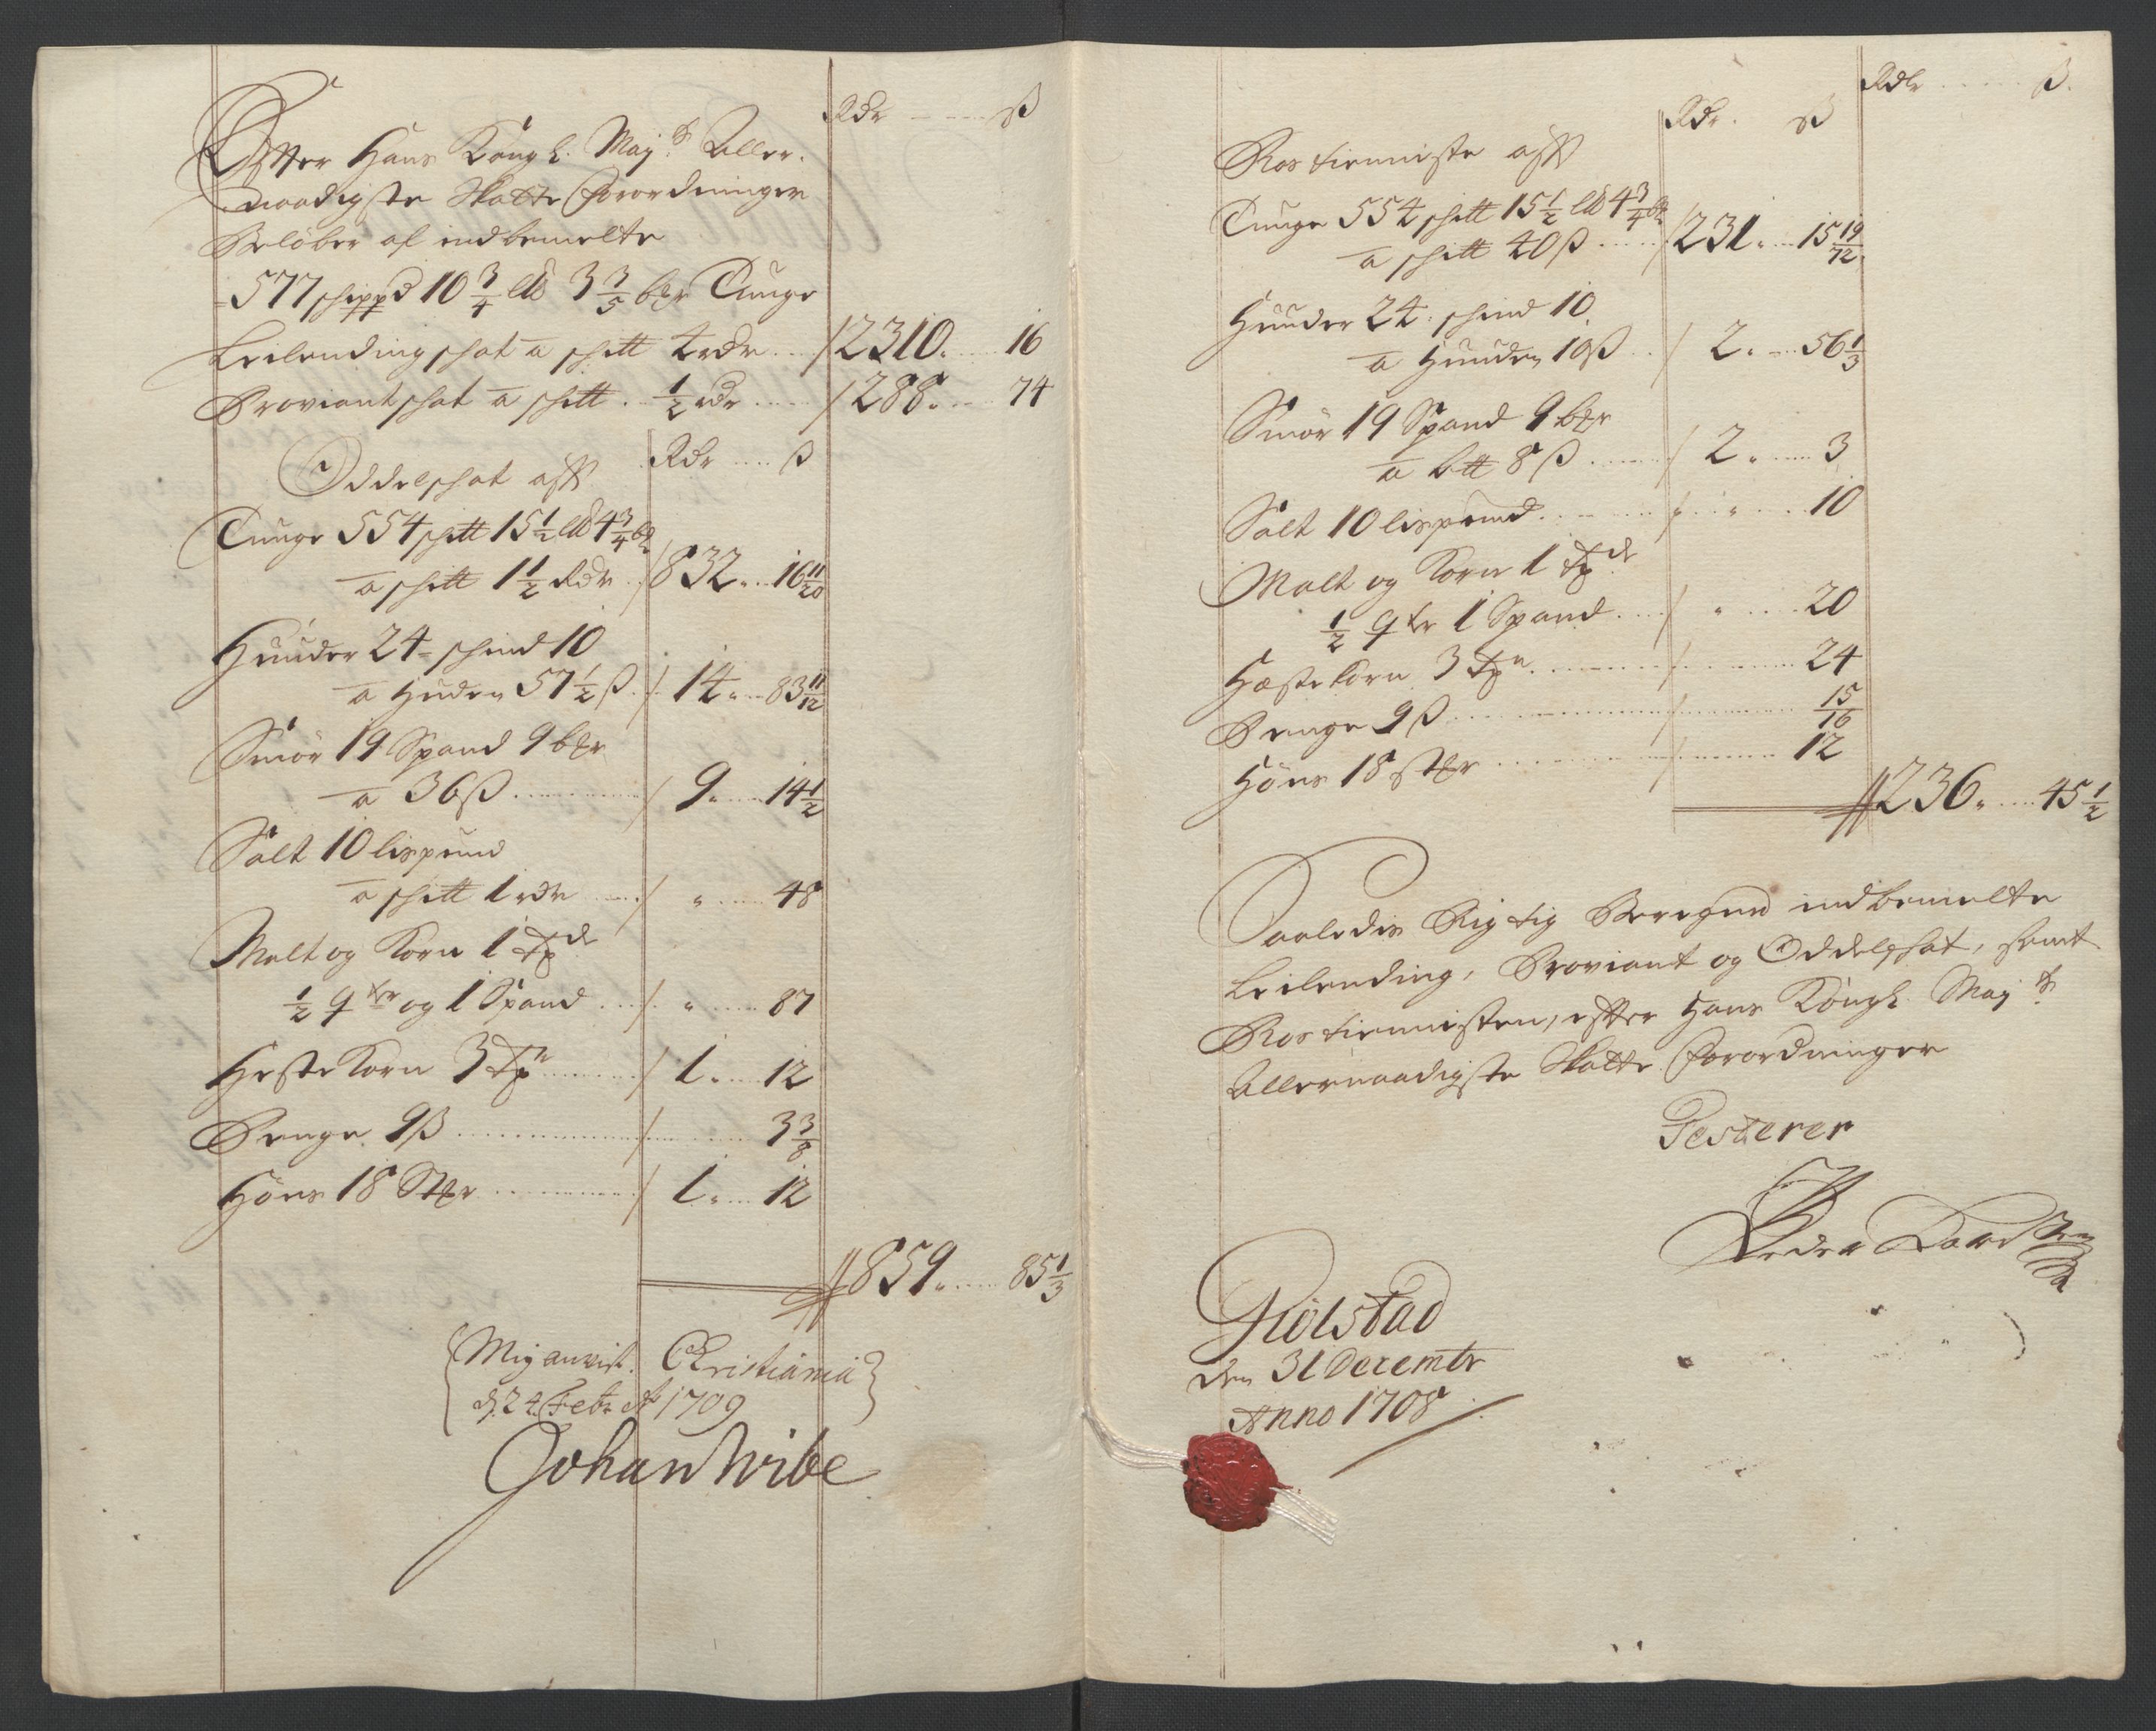 Rdr ß
Effter Hans Kongl. Maj:ts Aller-
naadigste Skatte forordninger
Beløber af indbemelte
577 schippd 10 3/4 lb 3 3/5 bpr Tunge
Leilending schat a schtt 4 rdr 2310. 16
Proviant schat a schtt. 1/2 rdr 288. 74
Oddelschat aff Rdr ß
Tunge 554 schtt 15 1/2 lb 4 3/4 b
a schtt 1 1/2 Rdr 832. 16 11/20
Huuder 24 schind 10
a Huden 57 1/2 ß 14. 83 11/12
Smør 19 Spand 9 bpr
a 36 ß 9. 14 1/2
Salt 10 lispund
a schtt 1 rdr " 48
Malt og Korn 1 Tde
1/2 qtr og 1 Spand " 87
Heste Korn 3 Tpr 1. 12
Penge 9 ß 3 3/8
Høns 18 Stpr 1. 12
859. 85 1/3
Mig anvist. Christiania
d. 24 Febr. Ao 1709
Johan Wibe
Rdr ß
Rdr. ß
Rostienniste aff
Tunge 554 schtt 15 1/2 lb 4 3/4 b
a schtt 40 ß 231. 15 19/72
Huuder 24. schind 10
a Huuden 10 ß 2. 56 1/3
Smør 19 Spand 9 bpr
a btt 8 ß 2. 3
Salt 10 lispund " 10
Malt og Korn 1 Tde
1/2 qtr 1 Spand " 20
Hæste Korn 3 Tpr 24
Penge 9 ß 15/16
Høns 18 Stpr 12
236. 45 1/2
Saaledis Rigtig Beregned indbemelte
Leilending, Proviant og Oddelschat, samt
Rostiennisten, effter Hans Kongl. Maj:ts
Allernaadigste Skatte forordninger
Testerer
Peder
Fiølstad
den 31 Decembr
Anno 1708